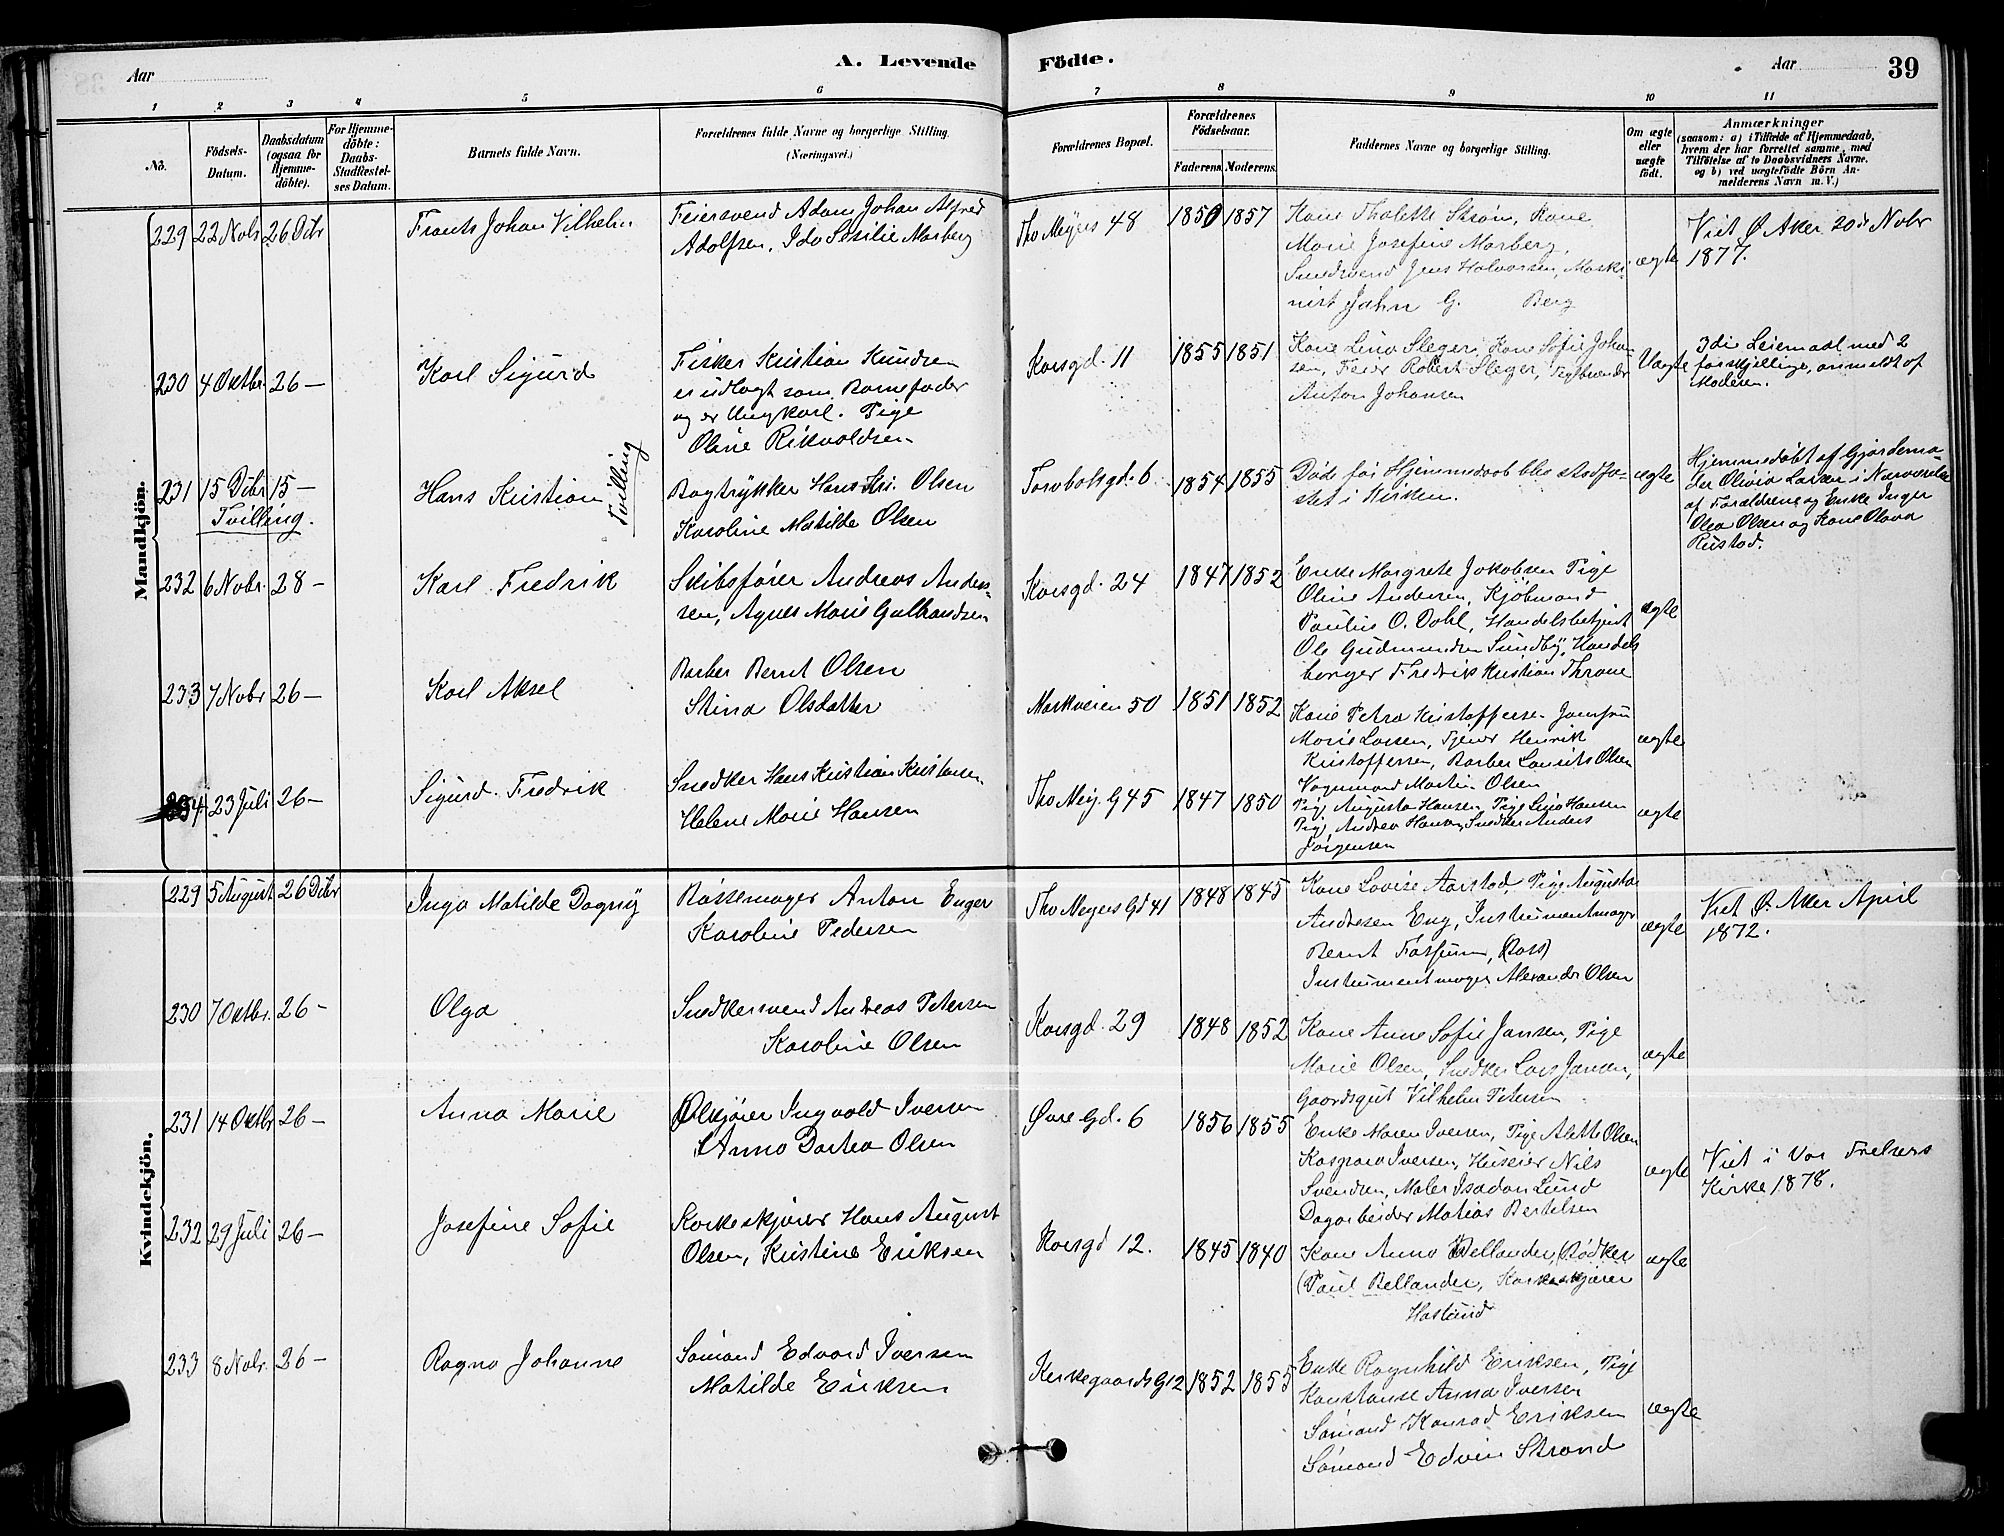 Aar
A. Levende
Födte.
Aar
39
1 2 3 4 5 6 7 8 9 10 11
No.
Födsels-Datum.
Daabsdatum (ogsaa for Hjemmedöbte).
For Hjemmedöbte: Daabs-Stadfæstelses Datum.
Barnets fulde Navn.
Forældrenes fulde Navne og borgerlige Stilling.
(Næringsvei.)
Forældrenes Bopæl.
Forældrenes Födselsaar.
Faderens. Moderens.
Faddernes Navne og borgerlige Stilling.
Om ægte eller uægte födt.
Anmærkninger
(saasom: a) i Tilfælde af Hjemmedaab, hvem der har forrettet samme, med Tilföielse af to Daabsvidners Navne, og b) ved uægtefödte Börn Anmelderens Navn m. V.)
Mandkjön.
229 22 Nobr 26 Dcbr
Frants Johan Vilhelm
Feiersvend Adam Johan Alfred
Adolfsen, Ida Sesilie Marberg
Tho Meyers 48
1850 1857
Kone Thalette Strøm, Kone
Marie Josefine Marberg,
Smedsvend Jens Halvorsen, Maski-
nist Jahn G. Berg
ægte
Viet Ø. Aker 20de Nobr
1877.
230 4 Oktbr 26 —
Karl Sigurd
Fisker Kristian Knudsen
er udlagt som Barnefader
og er Ungkarl. Pige
Oline Rikvoldsen
Korsgd. 11
1855 1851
Kone Lina Sleger, Kone Sofie Johan-
sen, Feier Robert Sleger,
Anton Johansen
Uægte
3die Leiermaal med 2
forskjellige, anmeldt af
Moderen.
231 15 Dcbr 15 —
Tvilling.
Hans Kristian
Tvilling
Bogtrykker Hans Kri. Olsen
Karoline Matilde Olsen
Torvbaksgd. 6
1854 1855
Døde før Hjemmedaab blev stadfæ-
stet i Kirken.
ægte
Hjemmedøbt af Gjordemo-
der Olivia Larsen i Nærværelse
af Forældrene og Enke Inger
Olea Olsen og Kone Olava
Rustad.
232 6 Nobr. 28 —
Karl Fredrik
Skibsfører Andreas Ander-
sen, Agnes Marie Gulbrandsen
Korsgd. 24
1847 1852
Enke Margrete Jakobsen Pige
Oline Andersen, Kjøbmand
Paulus O. Dahl, Handelsbetjent
Ole Gudmundsen Sundby, Handels
borger Fredrik Kristian Throne
ægte
233 7 Nobr 26 —
Karl Aksel
Barber Bernt Olsen
Stina Olsdatter
Markveien 50
1851 1852
Kone Petra Kristoffersen Jomfru
Marie Larsen, Tjener Henrik
Kristoffersen, Barber Laurits Olsen
Vognmand Martin Olsen
ægte
234 23 Juli 26 —
Sigurd Fredrik
Snedker Hans Kristian Kristensen
Helene Marie Hansen
Tho Mey. G 45
1847 1850
Pige Augusta Hansen, Pige Lina Hansen
Pige Andrea Hansen, Snedker Anders
Jørgensen
ægte
Kvindekjön.
229 5 August 26 Dcbr
Inga Matilde Dagny
Bøssemager Anton Enger
Karoline Pedersen
Tho Meyers Gd 41
1848 1845
Kone Lovise Aarstad, Pige Augusta
Andresen Eng, Instrumentmager
Bernt Fossum, (Barn)
Instrumentmager Alexander Olsen
ægte
Viet Ø. Aker April
1872.
230 7 Oktbr. 26 —
Olga
Snedkersvend Andreas Petersen
Karoline Olsen
Korsgd. 29
1848 1852
Kone Anne Sofie Jansen, Pige
Marie Olsen, Snedker Lars Jansen,
Gaardsgut Vilhelm Petersen
ægte
231 14 Oktbr 26 —
Anna Marie
Ølkjører Ingvald Iversen
Anna Dortea Olsen
Øvre Gd. 6
1856 1855
Enke Maren Iversen, Pige Alette Olsen
Kasparа Iversen, Huseier Nils
Svendsen, Maler Isadan Lund
Dagarbeider Matias Bertelsen
ægte
Viet i Vor Frelsers
Kirke 1878.
232 29 Juli 26 —
Josefine Sofie
Korkeskjærer Hans August
Olsen, Kristine Eriksen
Korsgd 12.
1845 1840
Kone Anna Bellander, (Bødker
(Paul Bellander, Korkeskjærer
Haslund
ægte
233 8 Nobr. 26 —
Ragna Johanne
Sømand Edvard Iversen
Matilde Eriksen
Kirkegaards G 12
1852 1855
Enke Ragnhild Eriksen, Pige
Konstanse Anna Iversen
Sømand Konrad Eriksen
Sømand Edvin Strand
ægte